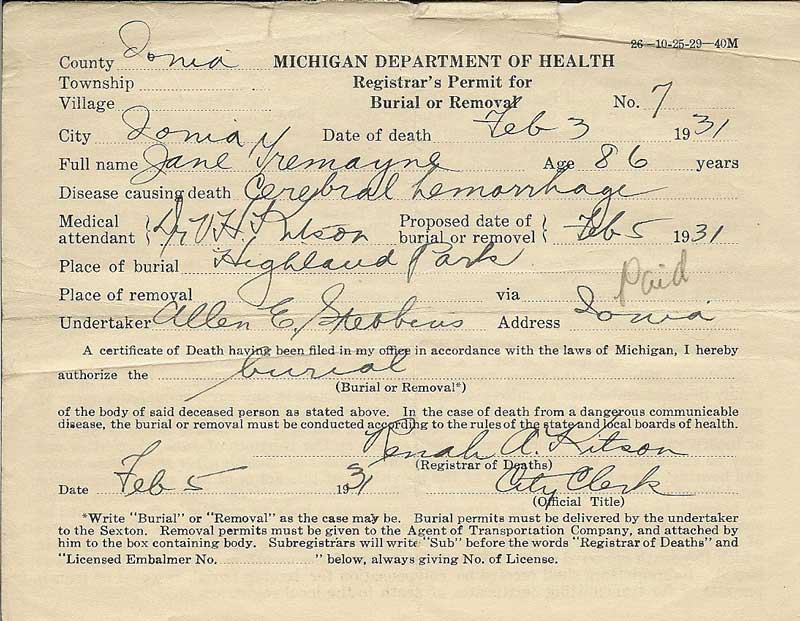 26—10-25-29—40M
County Ionia MICHIGAN DEPARTMENT OF HEALTH
Township Registrar's Permit for
Village Burial or Removal No. 7
City Ionia Date of death Feb 3 1931
Full name Jane Tremayne Age 86 years
Disease causing death Cerebral hemorrhage
Medical attendant Dr V H Kitson Proposed date of burial or removel Feb 5 1931
Place of burial Highland Park
Paid
Place of removal via
Undertaker Allen E. Stebbins Address Ionia
A certificate of Death having been filed in my office in accordance with the laws of Michigan, I hereby
authorize the burial
(Burial or Removal*)
of the body of said deceased person as stated above. In the case of death from a dangerous communicable
disease, the burial or removal must be conducted according to the rules of the state and local boards of health.
Renah A. Kitson
(Registrar of Deaths)
Date Feb 5 1931 City Clerk
(Official Title)
*Write "Burial" or "Removal" as the case may be. Burial permits must be delivered by the undertaker
to the Sexton. Removal permits must be given to the Agent of Transportation Company, and attached by
him to the box containing body. Subregistrars will write "Sub" before the words "Registrar of Deaths" and
"Licensed Embalmer No. " below, always giving No. of License.